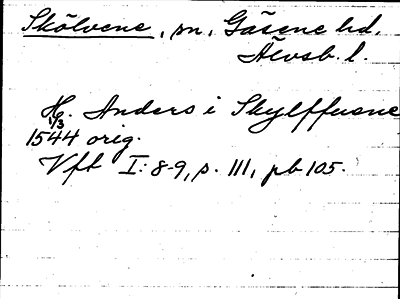 Skölvene, sn, Gäsene hd.
Älvsb. l.
H. Anders i Skylffuene
1/3
1544 orig.
Vft I:8-9, s. 111, pb 105.